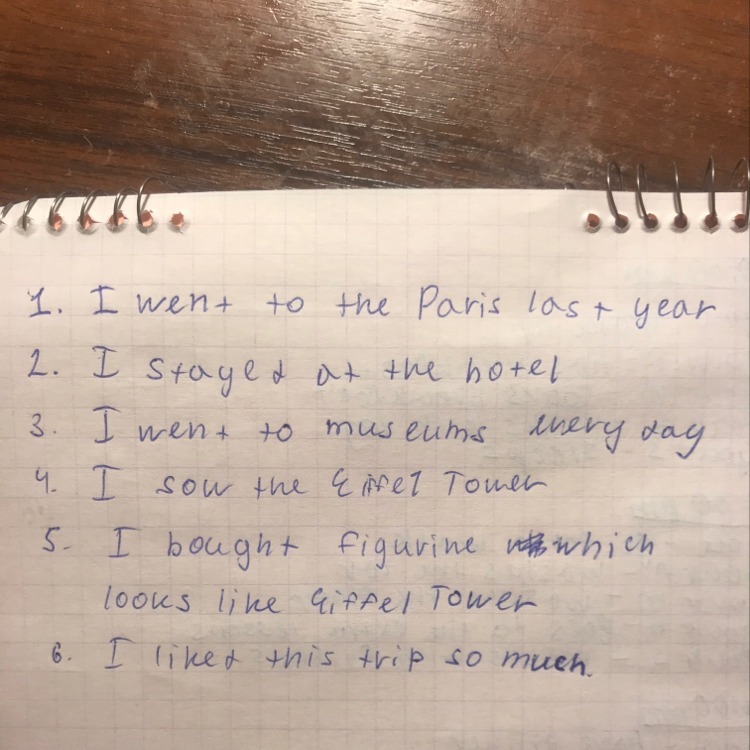 1. I went to the Paris last year
2. I stayed at the hotel
3. I went to museums every day
4. I sow the Eiffel Tower
5. I bought figurine which
looks like Eiffel Tower
6. I liked this trip so much.